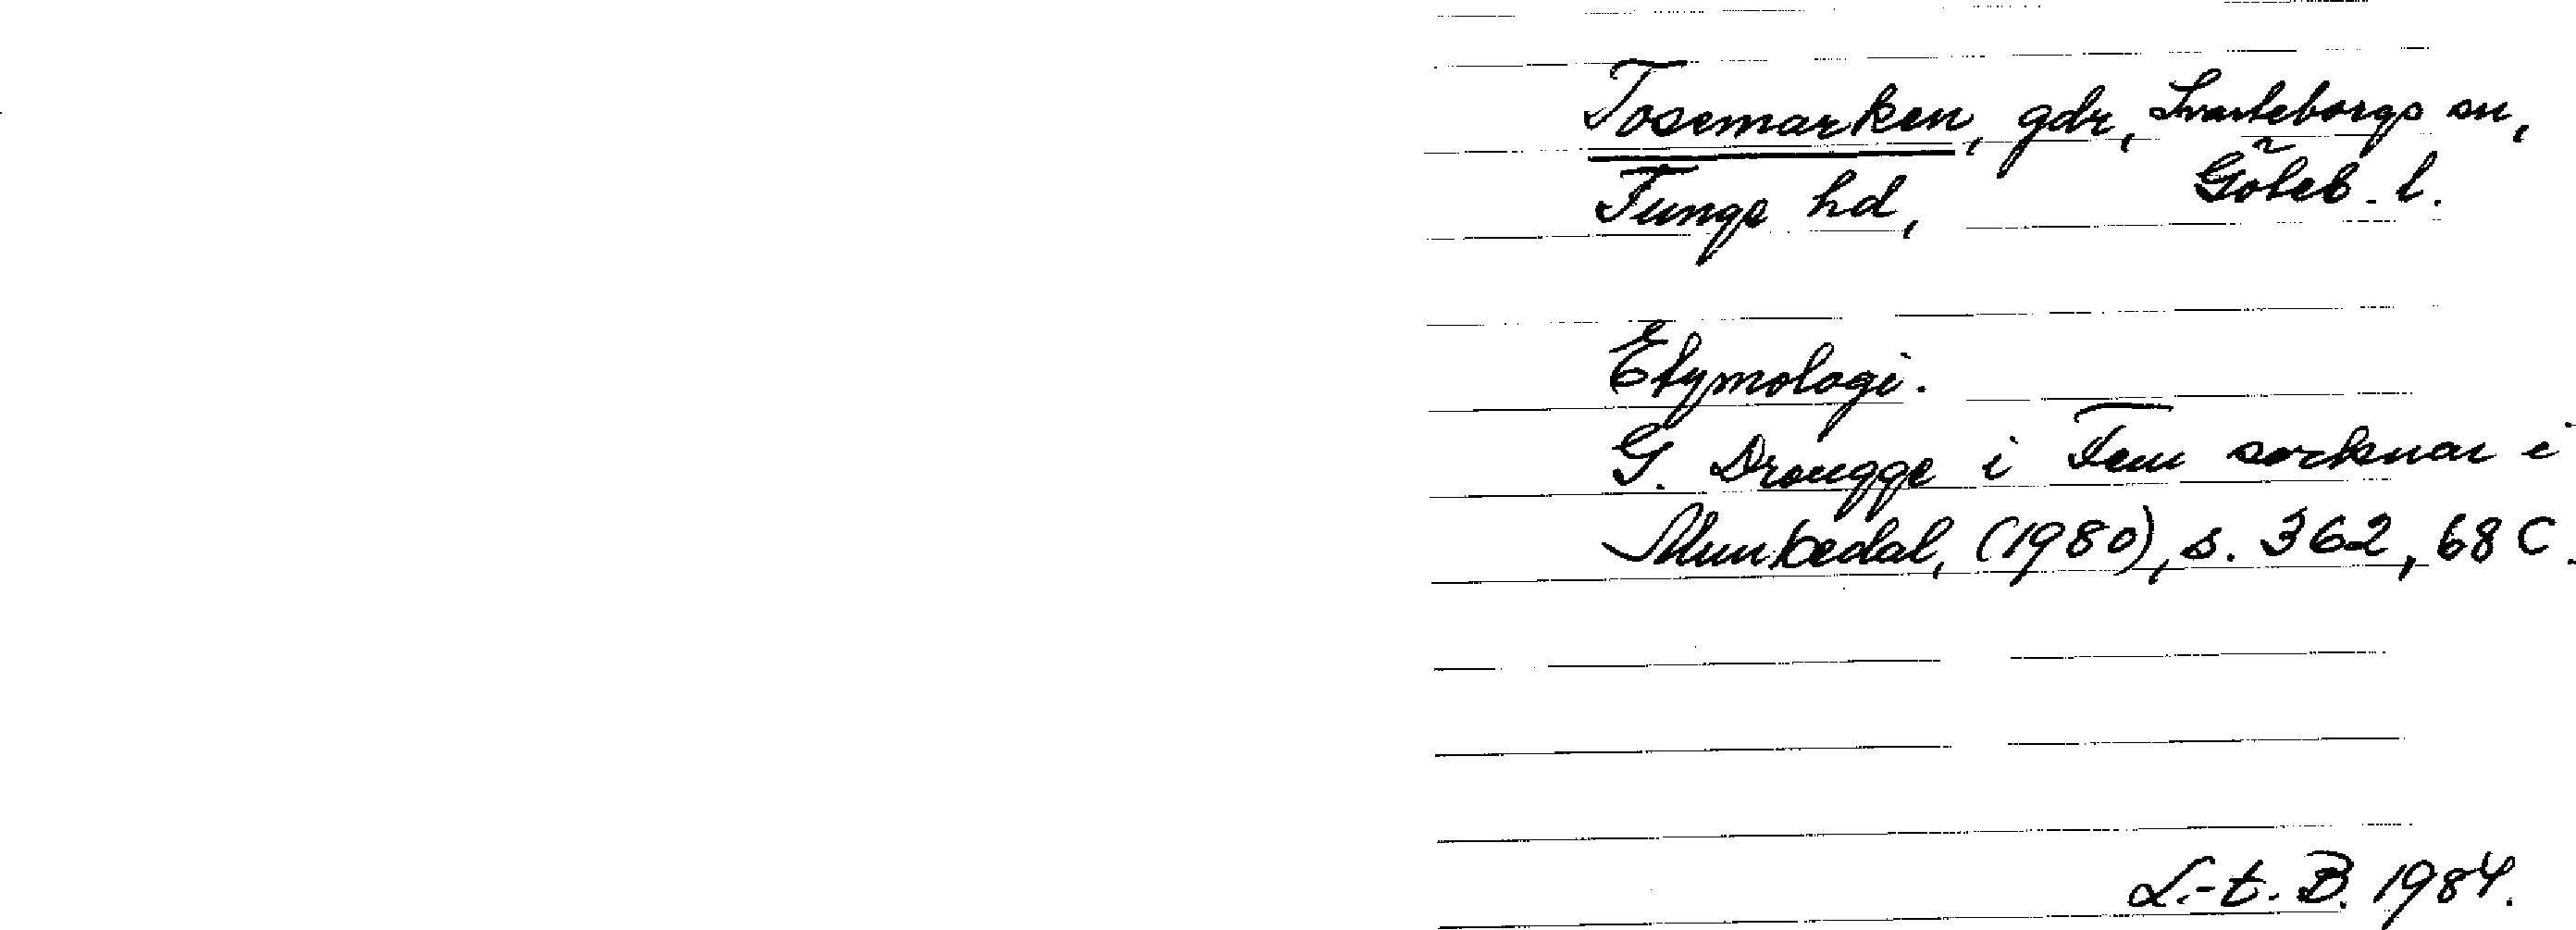 Tosemarken, gdr, Svarteborgs sn,
Tunge hd, Göteb. l.
Etymologi.
G. Drougge i Fem socknar i
Munkedal, (1980), s. 362, 68 C.
L.-t. B. 1984.